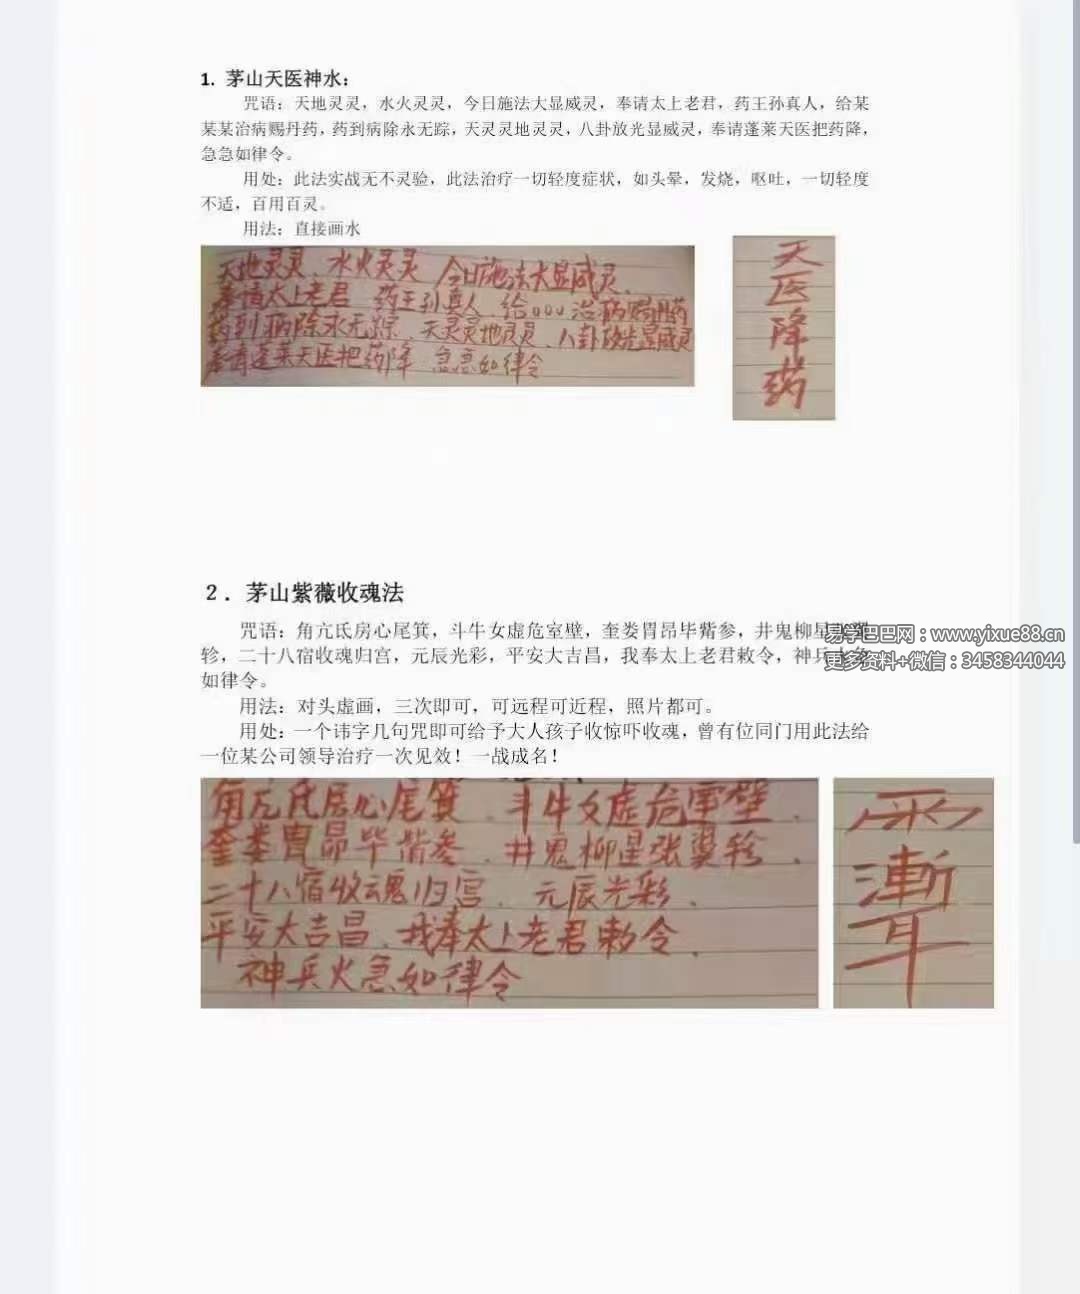 1. 茅山天医神水：
咒语：天地灵灵，水火灵灵，今日施法大显威灵，奉请太上老君，药王孙真人，给某
某某治病赐丹药，药到病除永无踪，天灵灵地灵灵，八卦放光显威灵，奉请蓬莱天医把药降，
急急如律令。
用处：此法实战无不灵验，此法治疗一切轻度症状，如头晕，发烧，呕吐，一切轻度
不适，百用百灵。
用法：直接画水
天地灵灵、水火灵灵 今日施法大显威灵、
奉请太上老君 药王孙真人、给000治病赐丹药
药到病除永无踪、天灵灵地灵灵、八卦放光显威灵
奉请蓬莱天医把药降 急急如律令
天
医
降
药
2．茅山紫薇收魂法
咒语：角亢氐房心尾箕，斗牛女虚危室壁，奎娄胃昂毕觜参，井鬼柳星
轸，二十八宿收魂归宫，元辰光彩，平安大吉昌，我奉太上老君敕令，神兵
如律令。
易学巴巴网：www.yixue88.cn
更多资料+微信：3458344044
用法：对头虚画，三次即可，可远程可近程，照片都可。
用处：一个讳字几句咒即可给予大人孩子收惊吓收魂，曾有位同门用此法给
一位某公司领导治疗一次见效！一战成名！
角亢氐房心尾箕、斗牛女虚危室壁、
奎娄胃昴毕觜参、井鬼柳星张翼轸、
二十八宿收魂归宫、元辰光彩、
平安大吉昌、我奉太上老君敕令、
神兵火急如律令